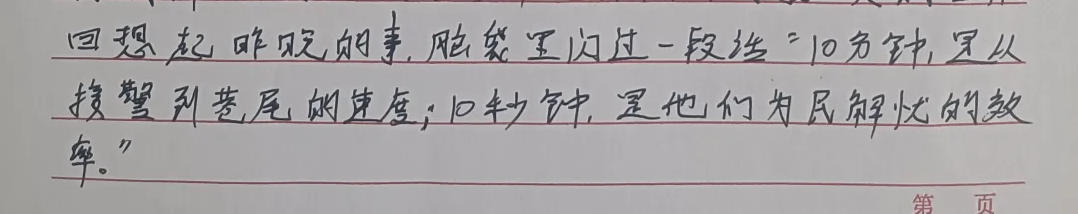 回想起昨晚的事,脑袋里闪过一段话“10分钟,是从
接警到巷尾的速度;10秒钟,是他们为民解忧的效
率。”
第 页